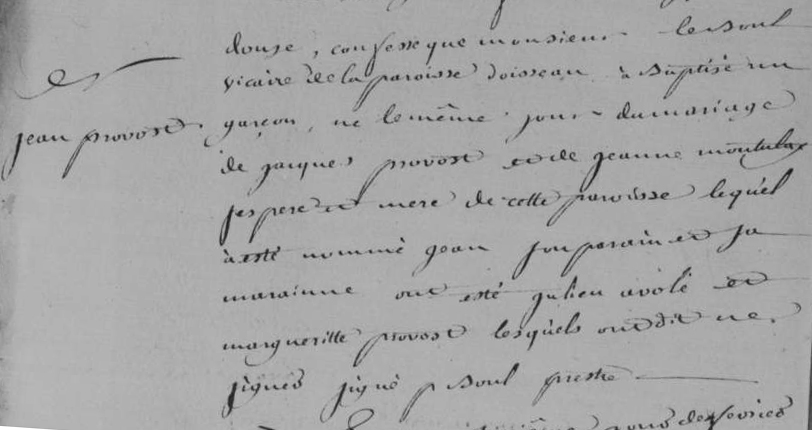 douze, confesse que monsieur le soul
vicaire de la paroisse doisseau à baptisé un
jean provost
garçon, ne le même jour du mariage
de jacques provost et de jeanne
ses pere et mere de cette paroisse lequel
à esté nommé jean son parain et sa
marainne ont esté julien avolé et
margueritte provost lesquels ont dit ne
signer signé p soul prestre